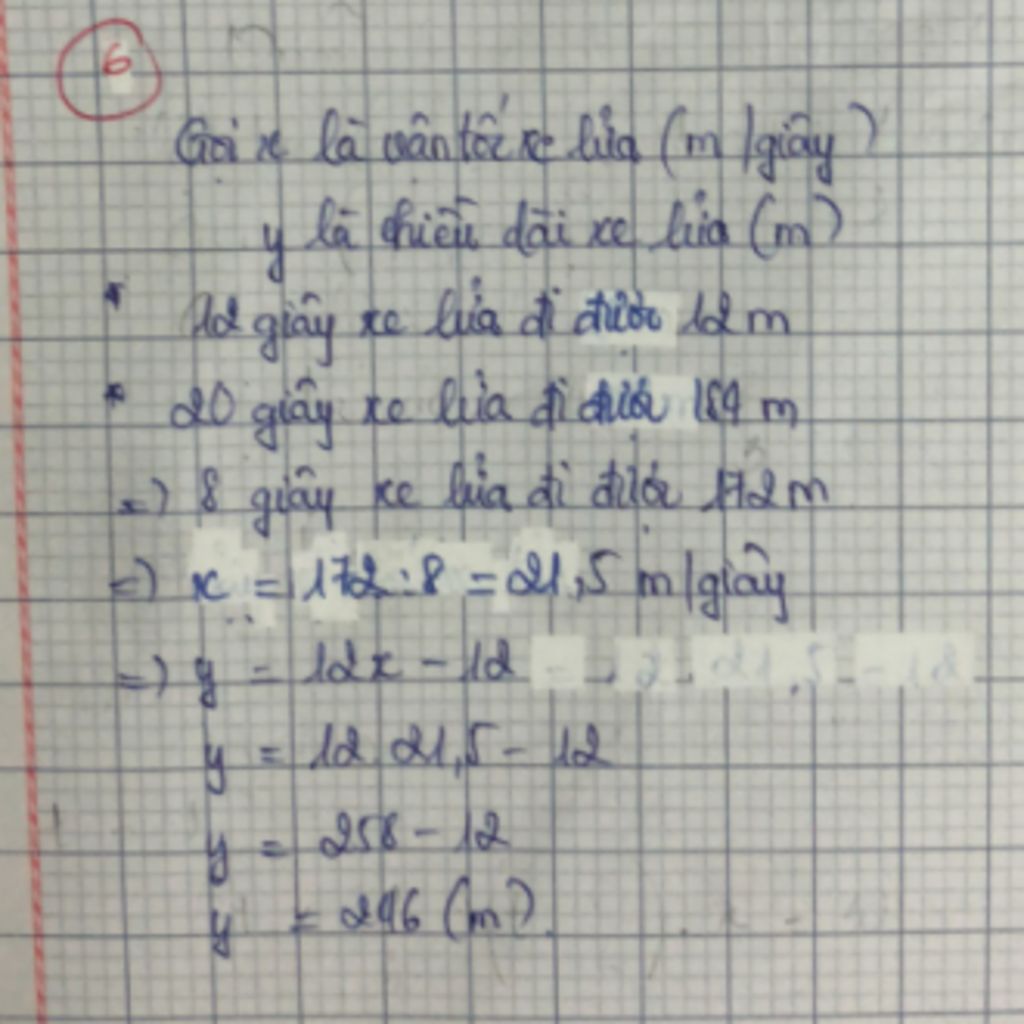 6
Gọi x là vận tốc xe lửa (m/giây)
y là chiều dài xe lửa (m)
* 12 giây xe lửa đi được 12 m
* 20 giây xe lửa đi được 184 m
=> 8 giây xe lửa đi được 172 m
=> x = 172 : 8 = 21,5 m/giây
=> y = 12x - 12 = 12 . 21,5 - 12
y = 12 . 21,5 - 12
y = 258 - 12
y = 246 (m).